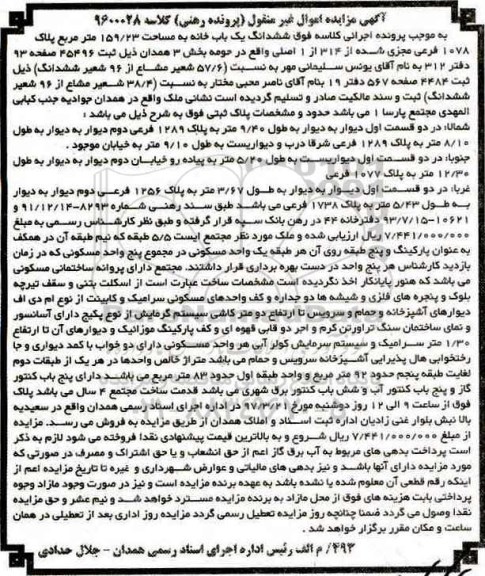 آگهی مزایده اموال غیر منقول (پرونده رهنی) کلاسه ۹۶۰۰۰۲۸
به موجب پرونده اجرائی کلاسه فوق ششدانگ یک باب خانه به مساحت ۱۵۹/۲۳ متر مربع پلاک
۱۰۷۸ فرعی مجزی شده از ۳۱۴ از ۱ اصلی واقع در حومه بخش ۳ همدان ذیل ثبت ۴۵۴۹۶ صفحه ۹۳
دفتر ۳۱۲ به نام آقای یونس سلیمانی مهر به نسبت (۵۷/۶ شعیر مشاع از ۹۶ شعیر ششدانگ) ذیل
ثبت ۴۴۸۴ صفحه ۵۶۷ دفتر ۱۹ بنام آقای ناصر محبی مختار به نسبت (۳۸/۴ شعیر مشاع از ۹۶ شعیر
ششدانگ) ثبت و سند مالکیت صادر و تسلیم گردیده است نشانی ملک واقع در همدان جوادیه جنب کبابی
المهدی مجتمع پارسا ۱ می باشد حدود و مشخصات پلاک ثبتی فوق به شرح ذیل می باشد :
شمالا: در دو قسمت اول دیوار به دیوار به طول ۹/۴۰ متر به پلاک ۱۲۸۹ فرعی دوم دیوار به دیوار به طول
۸/۱۰ متر به پلاک ۱۲۸۹ فرعی شرقا درب و دیواریست به طول ۹/۱۰ متر به خیابان موجود .
جنوبا: در دو قسمت اول دیواریست به طول ۵/۲۰ متر به پیاده رو خیابان دوم دیوار به دیوار به طول
۱۲/۳۰ متر به پلاک ۱۰۷۷ فرعی
غربا: در دو قسمت اول دیوار به دیوار به طول ۳/۶۷ متر به پلاک ۱۲۵۶ فرعی دوم دیوار به دیوار
به طول ۵/۴۳ متر به پلاک ۱۷۳۸ فرعی می باشد طبق سند رهنی شماره ۸۲۹۳-۹۱/۱۲/۱۴ و
۱۰۶۲۱-۹۳/۷/۱۵ دفترخانه ۴۴ در رهن بانک سپه قرار گرفته و طبق نظر کارشناس رسمی به مبلغ
۷/۴۴۱/۰۰۰/۰۰۰ ریال ارزیابی شده و ملک مورد نظر مجتمع ایست ۵/۵ طبقه که نیم طبقه آن در همکف
به عنوان پارکینگ و پنج طبقه روی آن هر طبقه یک واحد مسکونی در مجموع پنج واحد مسکونی که در زمان
بازدید کارشناس هر پنج واحد در دست بهره برداری قرار داشتند. مجتمع دارای پروانه ساختمانی مسکونی
می باشد که هنوز پایانکار اخذ نگردیده است مشخصات ساخت عبارت است از اسکلت بتنی و سقف تیرچه
بلوک و پنجره های فلزی و شیشه ها دو جداره و کف واحدهای مسکونی سرامیک و کابینت از نوع ام دی اف
دیوارهای آشپزخانه و حمام و سرویس تا ارتفاع دو متر کاشی سیستم گرمایش از نوع پکیج دارای آسانسور
و نمای ساختمان سنگ تراورتن کرم و اجر دو قابی قهوه ای و کف پارکینگ موزائیک و دیوارهای آن تا ارتفاع
۱/۳۰ متر سرامیک و سیستم سرمایش کولر آبی هر واحد مسکونی دارای دو خواب با کمد دیواری و جا
رختخوابی هال پذیرایی آشپزخانه سرویس و حمام می باشد متراژ خالص واحدها در هر یک از طبقات دوم
لغایت طبقه پنجم حدود ۹۲ متر مربع و واحد طبقه اول حدود ۸۳ متر مربع می باشد دارای پنج باب کنتور
گاز و پنج باب کنتور آب و شش باب کنتور برق شهری می باشد قدمت ساخت مجتمع ۴ سال می باشد پلاک
فوق از ساعت ۹ الی ۱۲ روز دوشنبه مورخ در اداره اجرای اسناد رسمی همدان واقع در سعیدیه
بالا نبش بلوار غنی زادیان اداره ثبت اسناد و املاک همدان از طریق مزایده به فروش می رسد. مزایده
از مبلغ ۷/۴۴۱/۰۰۰/۰۰۰ ریال شروع و به بالاترین قیمت پیشنهادی نقدا فروخته می شود لازم به ذکر
است پرداخت بدهی های مربوط به آب برق گاز اعم از حق انشعاب و یا حق اشتراک و مصرف در صورتی که
مورد مزایده دارای آنها باشد و نیز بدهی های مالیاتی و عوارض شهرداری و غیره تا تاریخ مزایده اعم از
اینکه رقم قطعی آن معلوم شده یا نشده باشد به عهده برنده مزایده است و نیز در صورت وجود مازاد وجوه
پرداختی بابت هزینه های فوق از محل مازاد به برنده مزایده مسترد خواهد شد و نیم عشر و حق مزایده
نقدا وصول می گردد ضمنا چنانچه روز مزایده تعطیل رسمی گردد مزایده روز اداری بعد از تعطیلی در همان
ساعت و مکان مقرر برگزار خواهد شد .
۴۹۳/ م الف رئیس اداره اجرای اسناد رسمی همدان - جلال حدادی